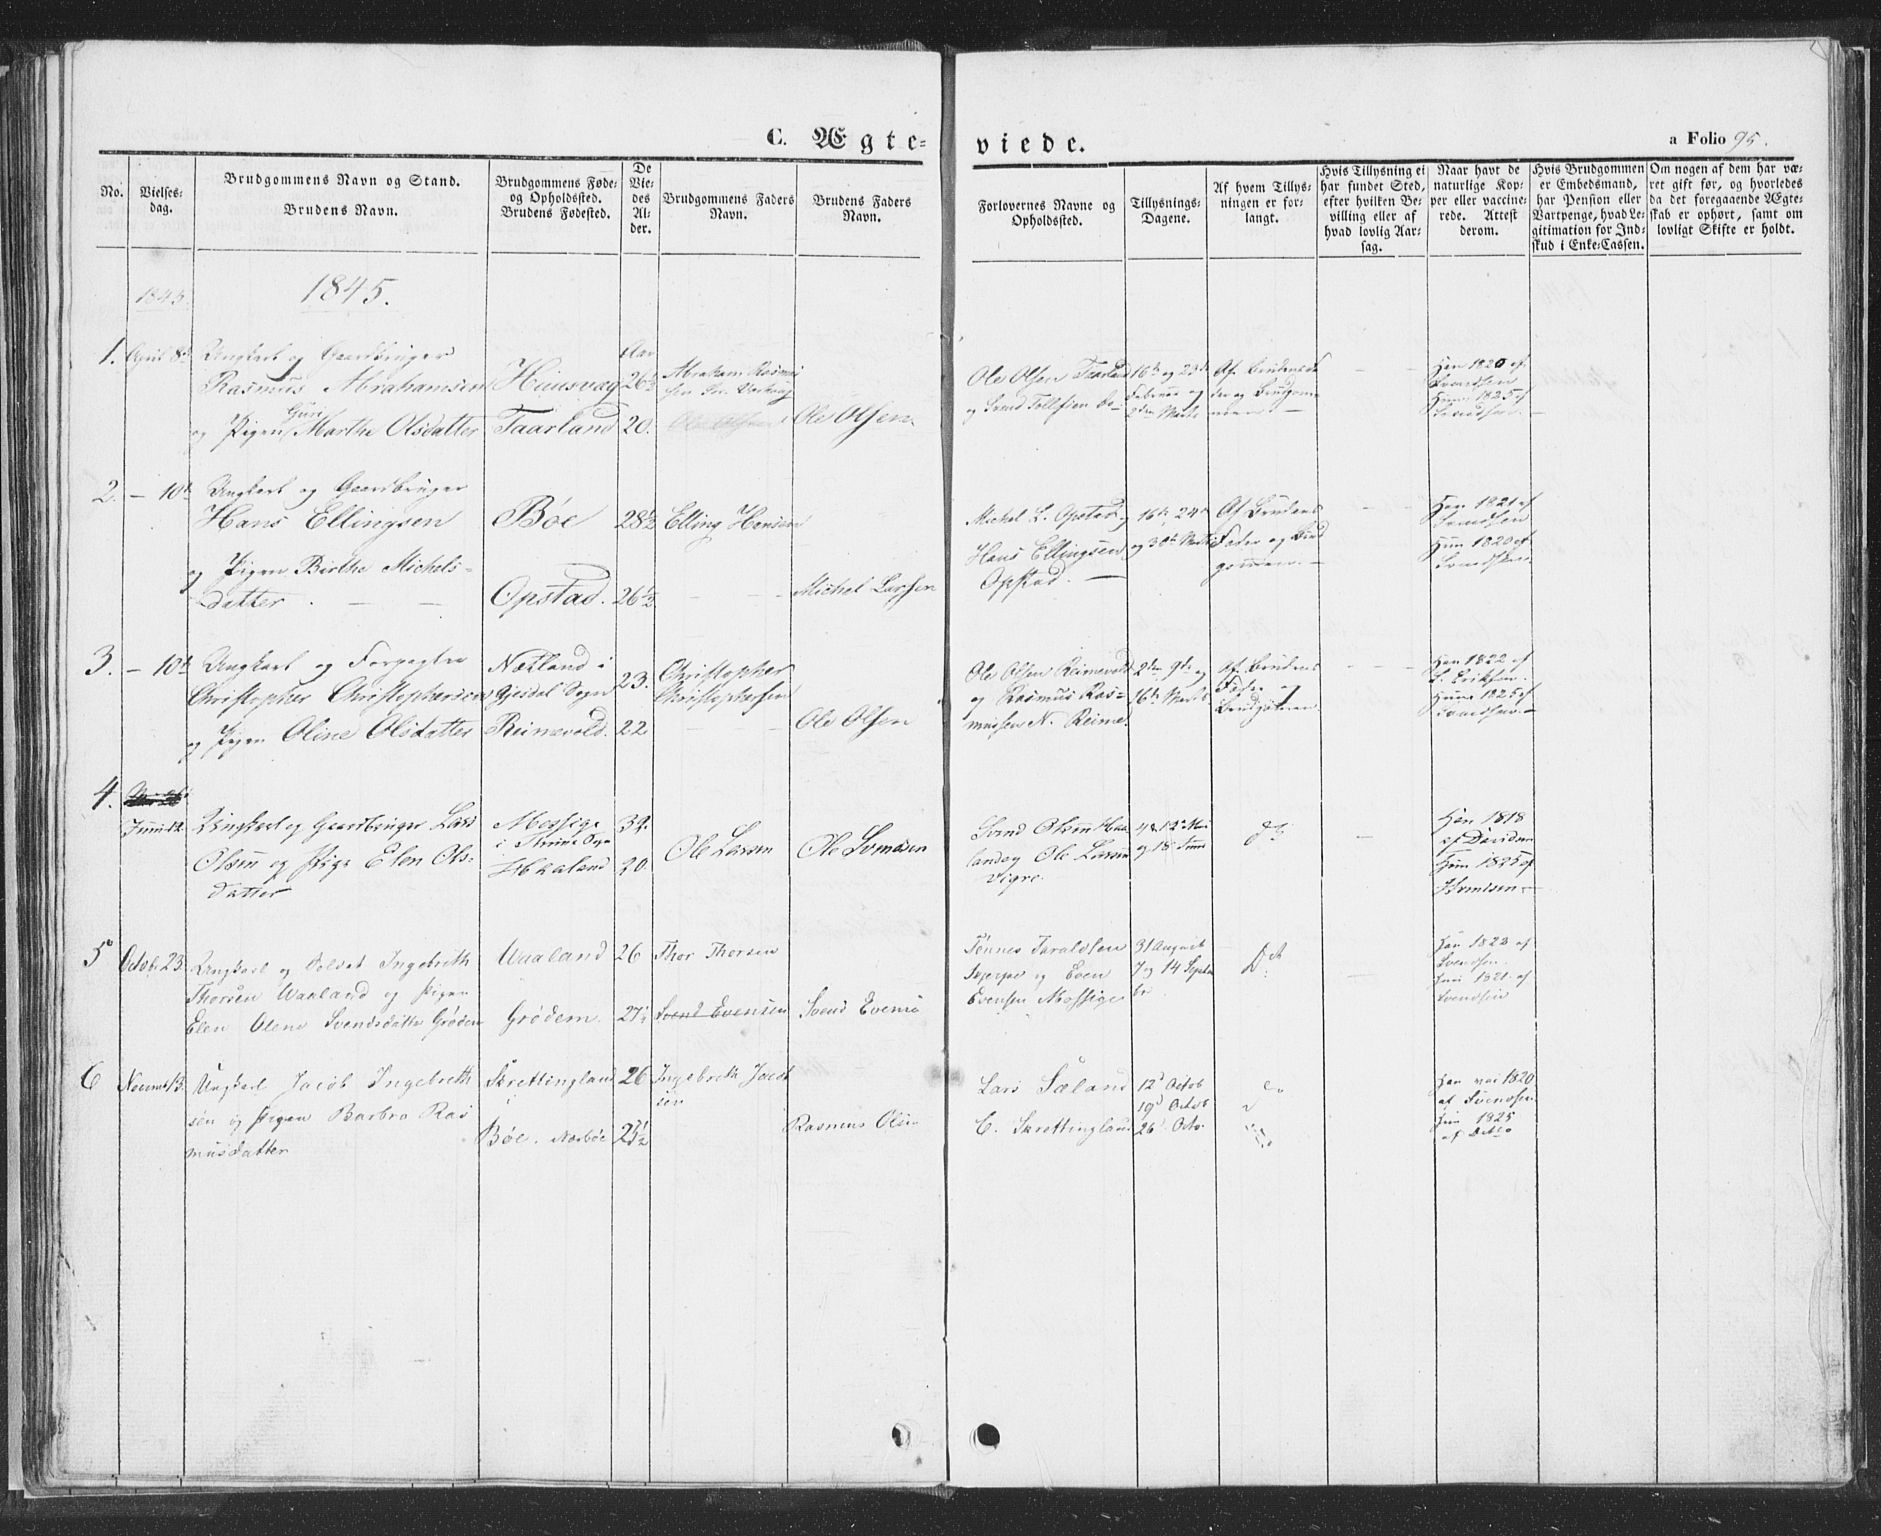 C. Ægte-
viede.
a Folio 95.
No.
Vielses-
dag.
Brudgommens Navn og Stand.
Brudens Navn.
Brudgommens Føde-
og Opholdssted.
Brudens Fødested.
De
Vie-
des
Al-
der.
Brudgommens Faders
Navn.
Brudens Faders
Navn.
Forlovernes Navne og
Opholdssted.
Tillysnings-
Dagene.
Af hvem Tillys-
ningen er for-
langt.
Hvis Tillysning ei
har fundet Sted,
efter hvilken Be-
villing eller af
hvad lovlig Aar-
sag.
Naar havt de
naturlige Kop-
per eller vaccine-
rede. Attest
derom.
Hvis Brudgommen
er Embedsmand,
har Pension eller
Vartpenge, hvad Le-
gitimation for Ind-
skud i Enke-Cassen.
Om nogen af dem har væ-
ret gift før, og hvorledes
da det foregaaende Ægte-
skab er ophørt, samt om
lovligt Skifte er holdt.
1845.
1845.
1.
April 8de
Ungkarl og Gaardbruger
Rasmus Abrahamsen
Guri
og Pigen Marthe Olsdatter
Taarland
Aar
26½
20.
Abraham Rasmus
sen
Ole Olsen
Ole Olsen Taarland
og Svend Tollefsen
16de og 23de
Februar og
2den Marts
Af Brudens Fa
der og Brudgom
men. —
Han 1820 af
Svendsen
Hun 1825 af
Svendsen.
2.
— 10de
Ungkarl og Gaardbruger
Hans Ellingsen
og Pigen Birthe Michels-
datter. — —
Bøe
Opstad.
28½
26½
Elling Hansen
Michel Larsen
Michel L. Opstad og
Hans Ellingsen
Opstad. —
16de, 24de
og 30te Marts
Af Brudens
Fader og Brud
gommen. —
Han 1821 af
Svendsen
Hun 1820 af
Svendsen
3.
— 10de
Ungkarl og Forpagter
Christopher Christophersen
og Pigen Oline Olsdatter
Netland i
Gjesdal Sogn
Reinevold.
23.
22
Christopher
Christophersen
Ole Olsen
Ole Olsen Reinevold
og Rasmus Ras-
mussen N. Reime.
2den 9de og
16de Marts
Af Brudens
Fader og
Brudgommen.
Han 1822 af
L. Eriksen.
Hun 1825 af
Svendsen. —
4.
Juni 12
Ungkarl og Gaardbruger Lars
Olsen og Pige Elen Ols-
datter
Mossige
i Thime Sogn
Haaland
34.
20.
Ole Larsen
Ole Svendsen
Svend Olsen Haa
land og Ole Larsen
Vigre.
4de 12te Mai
og 18 Juni
do
Han 1818
af Davidsen
Hun 1825 af
Svendsen —
5
October 23.
Ungkarl og Soldat Ingebreth
Thorsen Waaland og Pigen
Elen Olene Svendsdatter Grødem
Waaland
Grødem.
26
27½
Thor Thorsen
Svend Evensen
Svend Evensen
Tønnes Taraldsen
og Even
Evensen Mossige
31 August
7 og 14 Septem
br.
Dt
Han 1822 af
Svendsen.
Hun 1821. af
Svendsen
6
Novemb 13.
Ungkarl Jacob Ingebreth
sen og Pigen Barbro Ras
musdatter
Skrettingland
Bøe. Nærbøe
26
25½
Ingebreth Jacob
sen
Rasmus Olsen
Lars Sæland
E. Skrettingland
12d Octob
19d Octob
26d Octo
do
Han vac 1820
af Svendsen
Hun 1825
af Ditto